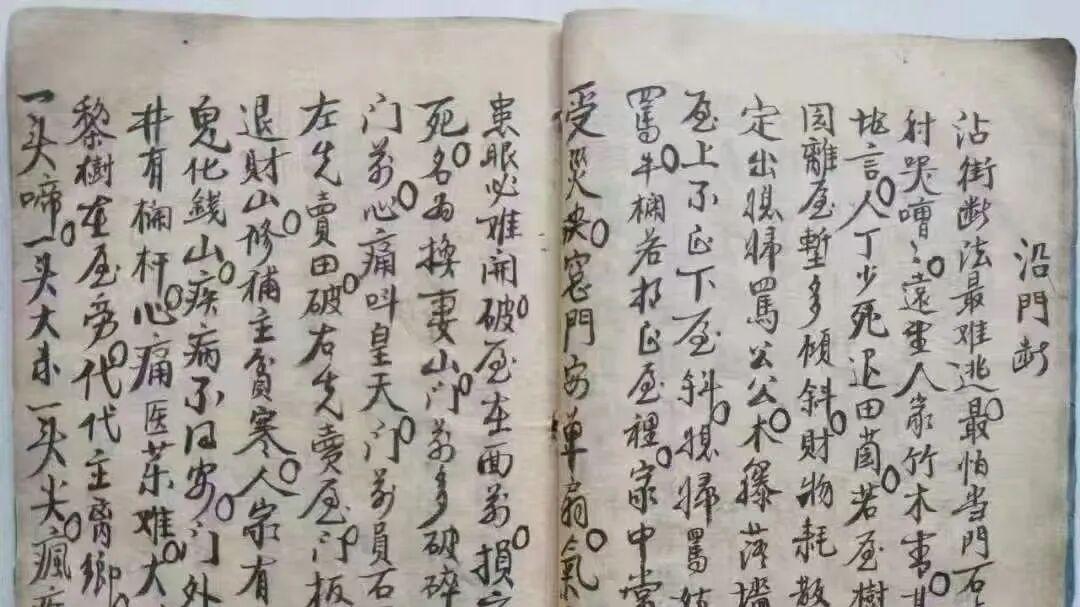 沿門断
沾街断法最难逃最怕当門石
射哭嘈〻遠望人家竹木書
地言人丁少死退田茵若屋樹
园離屋塹多傾斜財物耗散
定出媳婦罵公公木籐落墻
屋上不正下屋斜媳婦罵姑
罵牛欄若打正屋裡家中常
受災殃窓門安单扇氣
患眼必难開破屋在面前損
死名为换妻山门前多破碎
门前心痛叫皇天门前員石
左先賣田破右先賣屋门板
退財山修補主貧寒人家有
鬼化錢山疾病不日安门外
井有桐杆心痛医药难大
黎樹在屋旁代代主离鄉
一头啼一头大未一头尖瘋